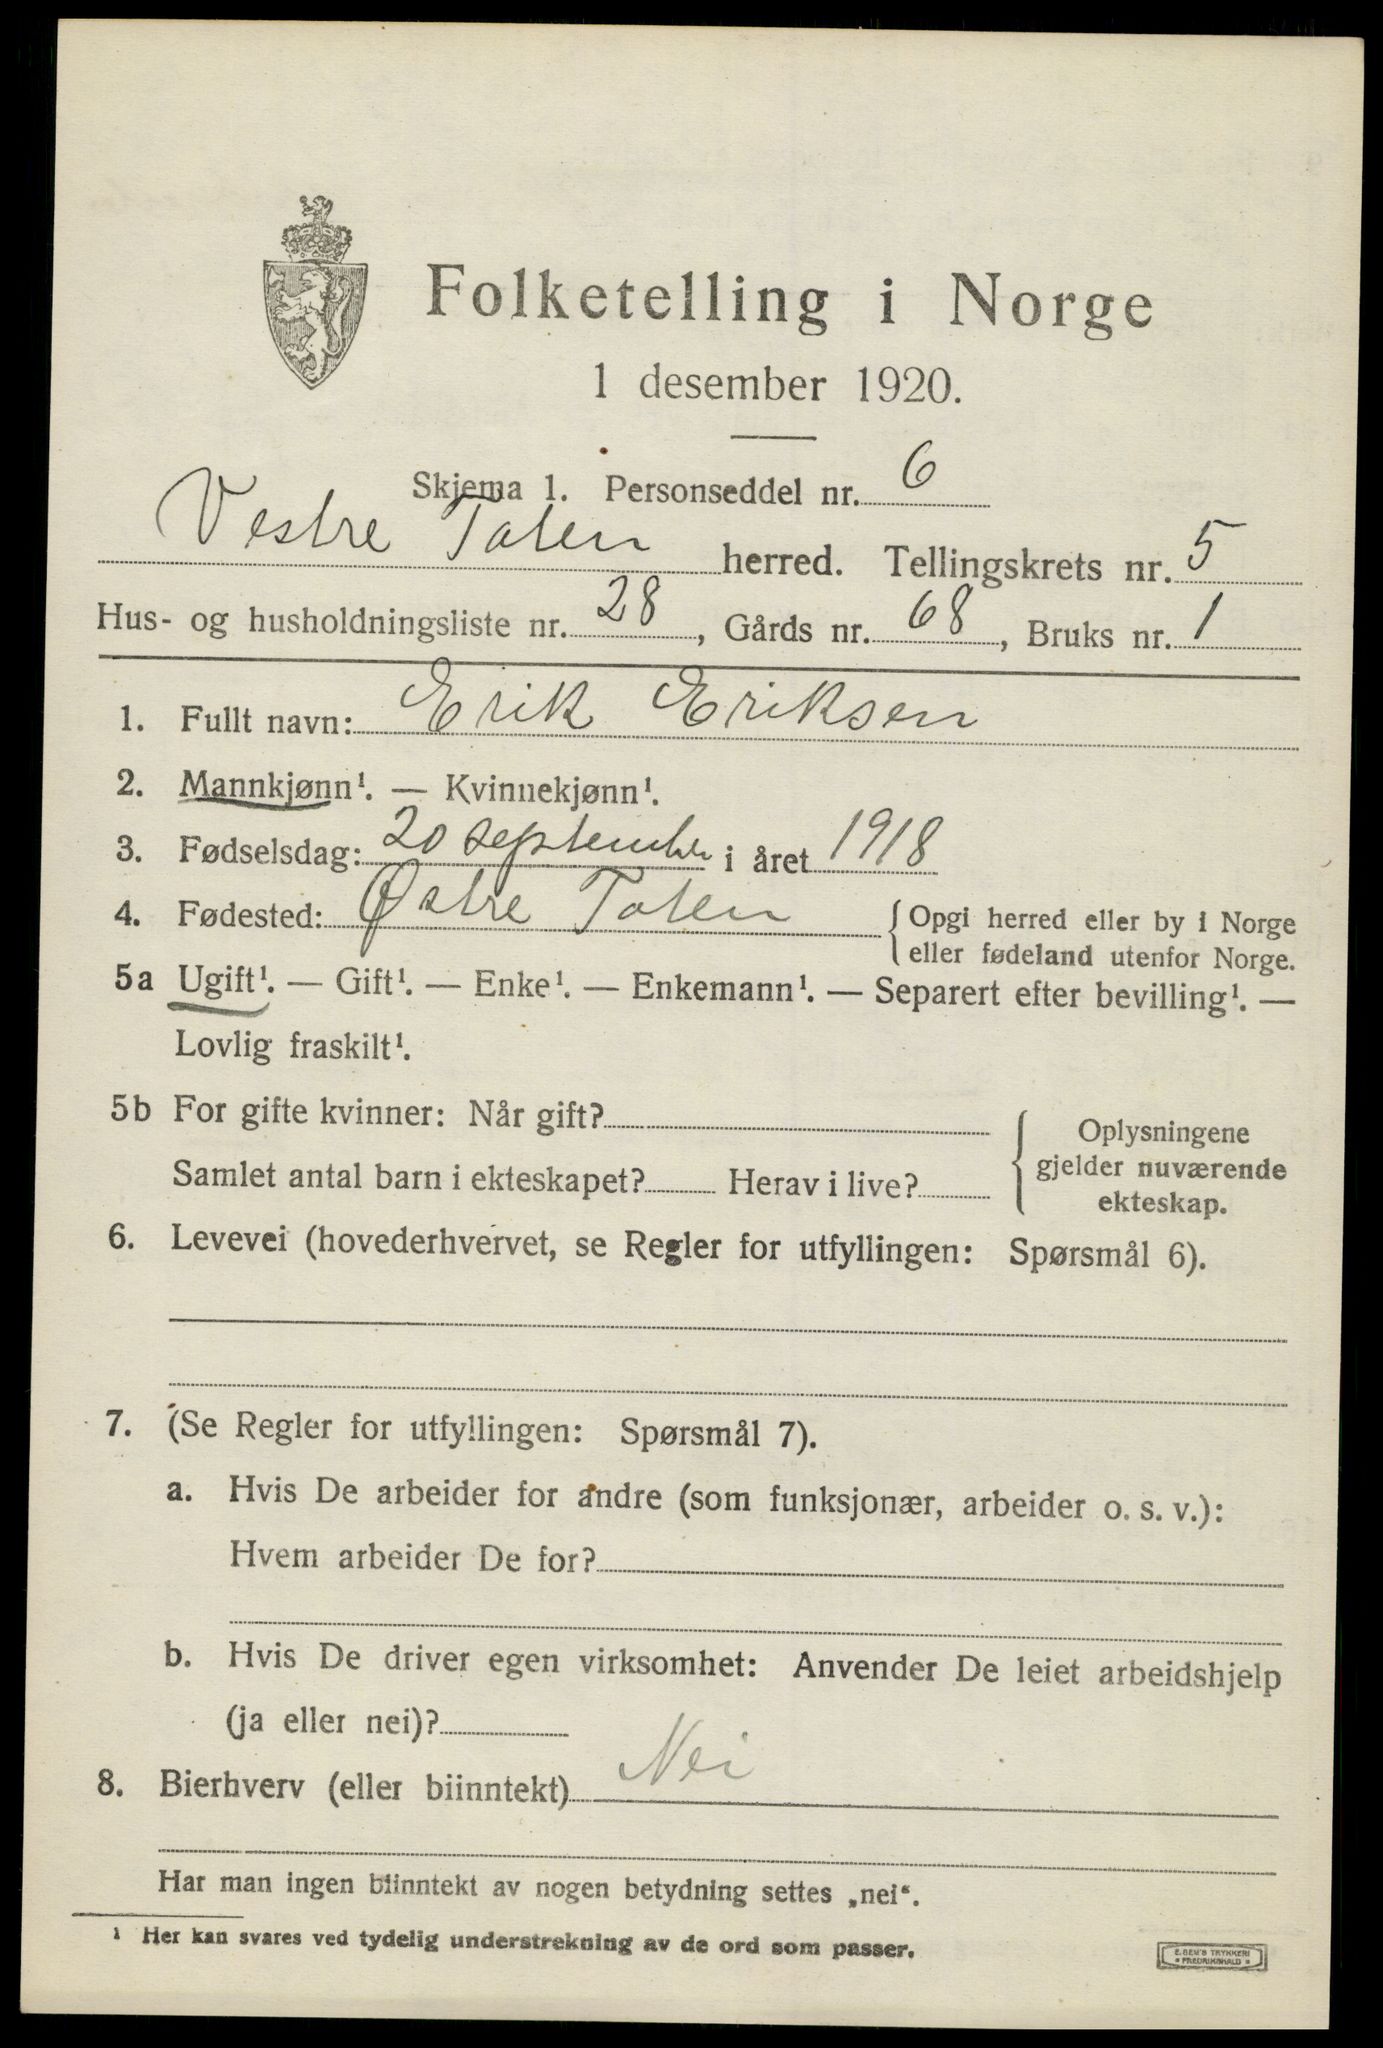 Folketelling i Norge
1 desember 1920.
Skjema 1. Personseddel nr. 6
Vestre Toten herred. Tellingskrets nr. 5
Hus- og husholdningsliste nr. 28, Gårds nr. 68, Bruks nr. 1
1. Fullt navn: Erik Eriksen
2. Mannkjønn¹. — Kvinnekjønn¹.
3. Fødselsdag: 20 september i året 1918
4. Fødested: Østre Toten { Opgi herred eller by i Norge
eller fødeland utenfor Norge.
5a Ugift¹. — Gift¹. — Enke¹. — Enkemann¹. — Separert efter bevilling¹. —
Lovlig fraskilt¹.
5b For gifte kvinner: Når gift?
Samlet antal barn i ekteskapet? Herav i live?
{ Oplysningene
gjelder nuværende
ekteskap.
6. Levevei (hovederhvervet, se Regler for utfyllingen: Spørsmål 6).
7. (Se Regler for utfyllingen: Spørsmål 7).
a. Hvis De arbeider for andre (som funksjonær, arbeider o. s. v.):
Hvem arbeider De for?
b. Hvis De driver egen virksomhet: Anvender De leiet arbeidshjelp
(ja eller nei)?
8. Bierhverv (eller biinntekt) Nei
Har man ingen biinntekt av nogen betydning settes „nei“.
¹ Her kan svares ved tydelig understrekning av de ord som passer.
E. SEM'S TRYKKERI
* FREDRIKSHALD *